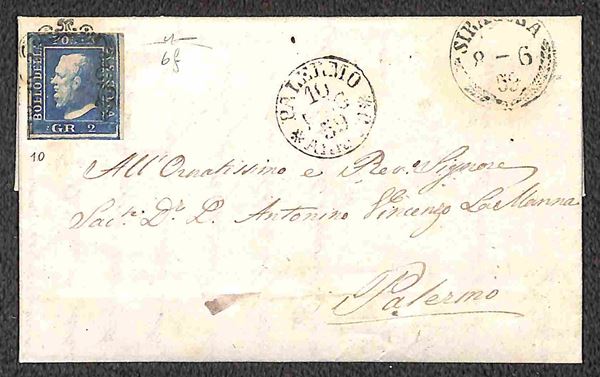 BOLLO DELLA
GR 2
6f
PALERMO
19
59
ARR
SIRACUSA
8 - 6
59
10
All'Ornatissimo e Rev. Signore
Sac.te D.r P. Antonino Vincenzo La Manna
Palermo